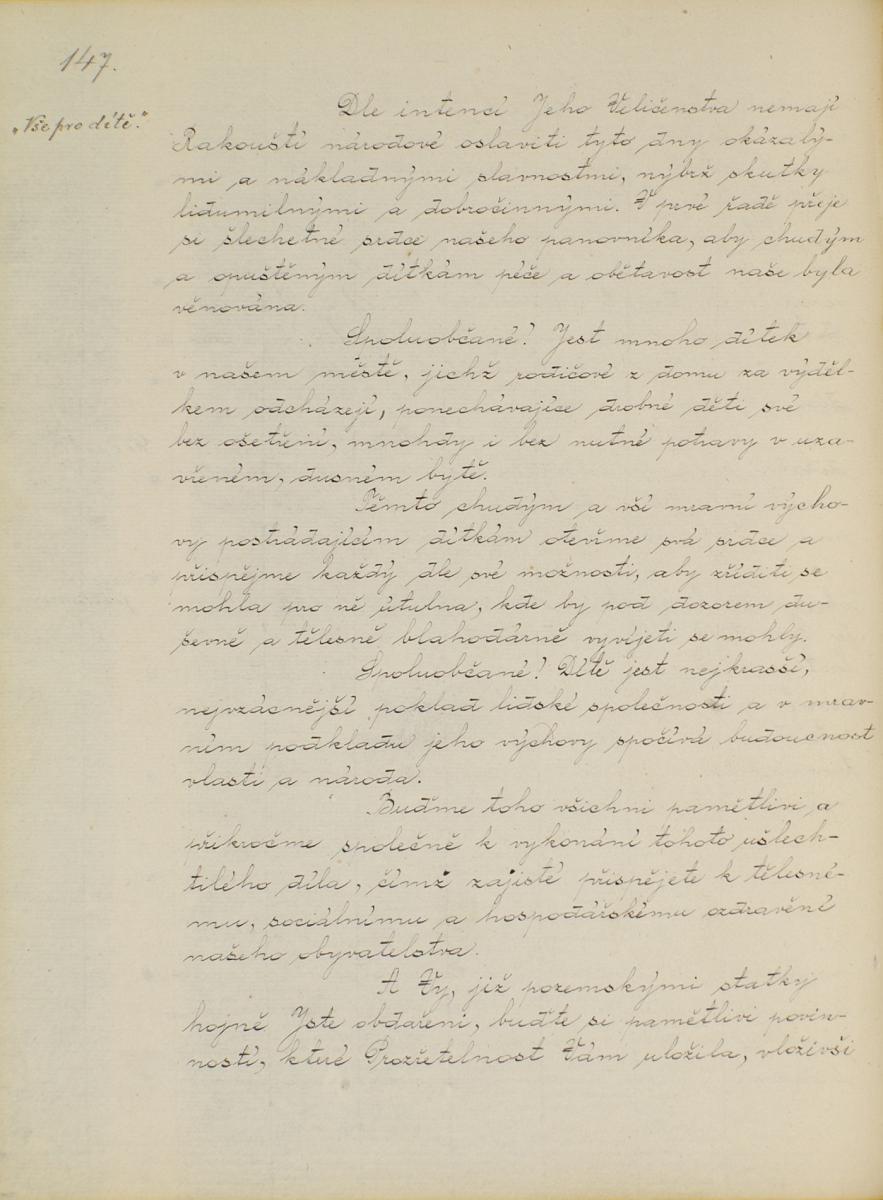 147.
„Vše pro dítě."
Dle intencí Jeho Veličenstva nemají
Rakouští národové oslaviti tyto dny okázalý-
mi a nákladnými slavnostmi, nýbrž skutky
lidumilnými a dobročinnými. V prvé řadě přeje
si šlechetné srdce našeho panovníka, aby chudým
a opuštěným dítkám péče a obětavost naše byla
věnována.
Spoluobčané! Jest mnoho dítek
v našem městě, jichž rodičové z domu za výděl-
kem odcházejí, ponechávajíce drobné děti své
bez ošetření, mnohdy i bez nutné potravy v uza-
vřeném, dusném bytě.
Těmto chudým a vší mravní výcho-
vy postrádajícím dítkám otevřme svá srdce a
přispějme každý dle své možnosti, aby zříditi se
mohla pro ně útulna, kde by pod dozorem du-
ševně a tělesně blahodárně vyvíjeti se mohly.
Spoluobčané! Dítě jest nejkrasší,
nejvzácnější poklad lidské společnosti a v mrav-
ním podkladu jeho výchovy spočívá budoucnost
vlasti a národa.
Buďme toho všichni pamětlivi a
přikročme společně k vykonání tohoto ušlech-
tilého díla, čímž zajisté přispějete k tělesné-
mu, sociálnímu a hospodářskému ozdravění
našeho obyvatelstva.
A Vy, již pozemskými statky
hojně Jste obdařeni, buďte si pamětlivi povin-
ností, které Prozřetelnost Vám uložila, vloživši